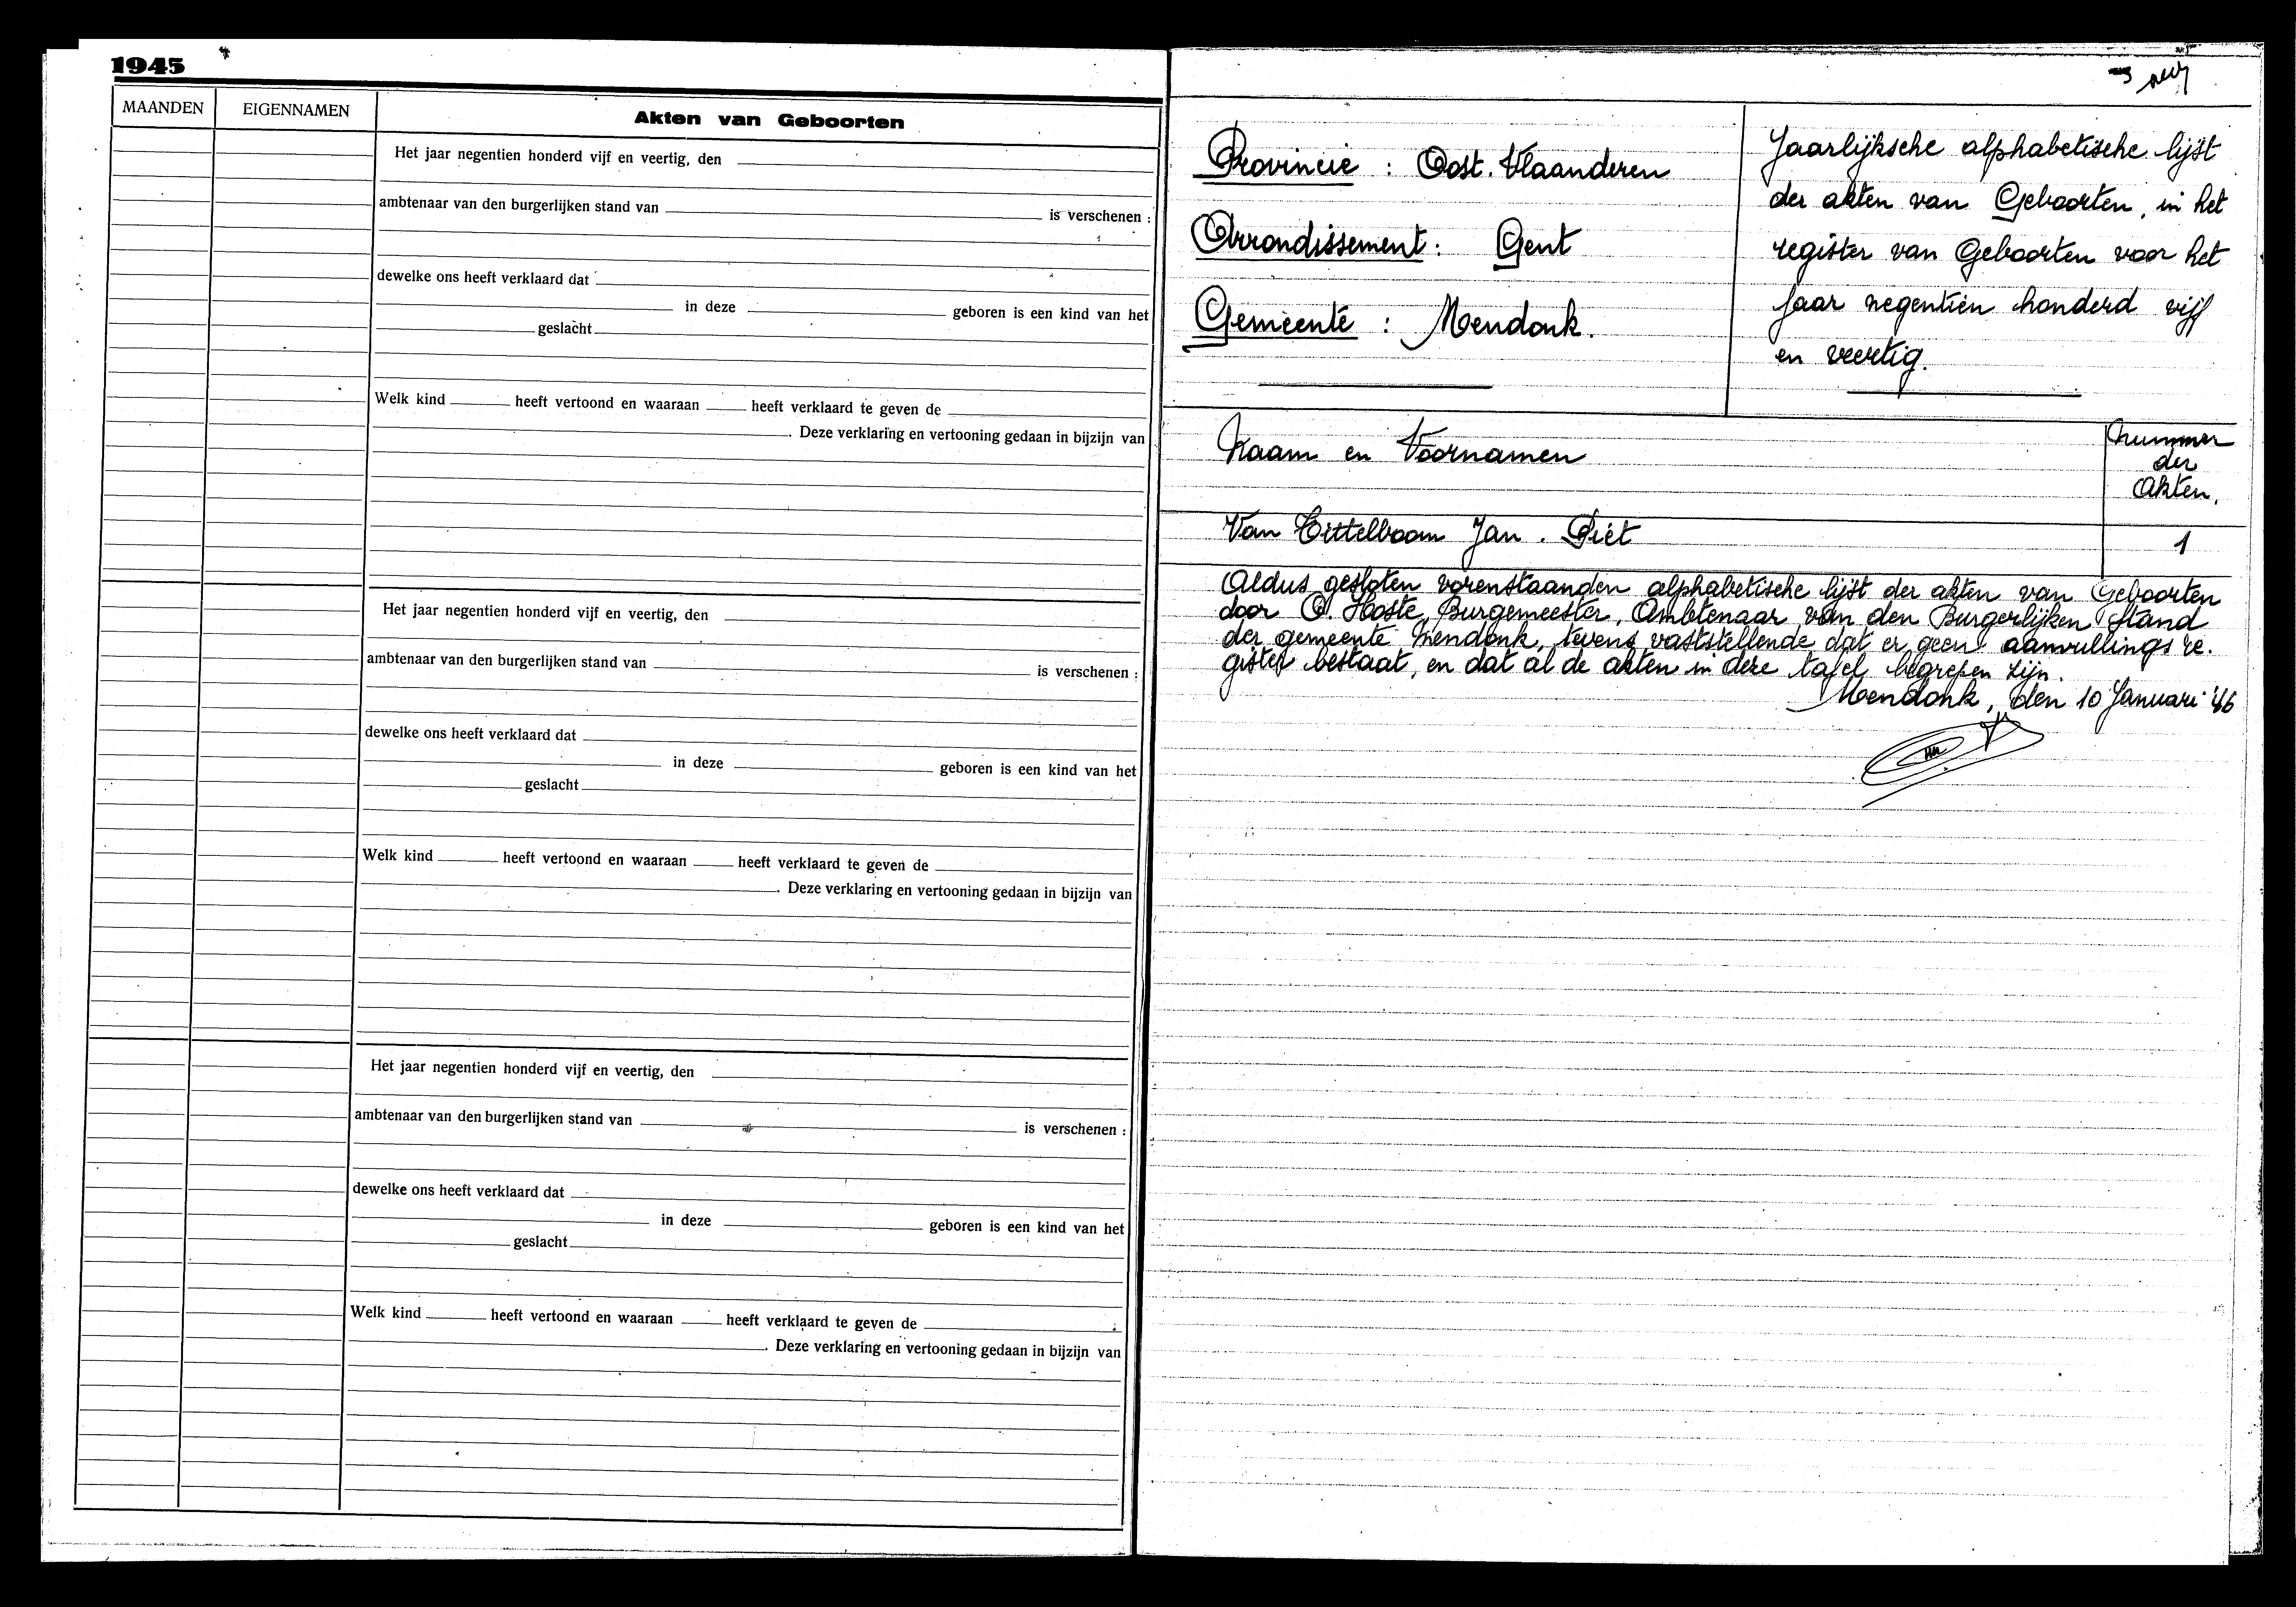 1945
MAANDEN
EIGENNAMEN
Akten van Geboorten
Het jaar negentien honderd vijf en veertig, den
ambtenaar van den burgerlijken stand van
is verschenen :
dewelke ons heeft verklaard dat
in deze
geboren is een kind van het
geslacht
Welk kind heeft vertoond en waaraan heeft verklaard te geven de
. Deze verklaring en vertooning gedaan in bijzijn van
Het jaar negentien honderd vijf en veertig, den
ambtenaar van den burgerlijken stand van
is verschenen :
dewelke ons heeft verklaard dat
in deze
geboren is een kind van het
geslacht
Welk kind heeft vertoond en waaraan heeft verklaard te geven de
. Deze verklaring en vertooning gedaan in bijzijn van
Het jaar negentien honderd vijf en veertig, den
ambtenaar van den burgerlijken stand van
is verschenen :
dewelke ons heeft verklaard dat
in deze
geboren is een kind van het
geslacht
Welk kind heeft vertoond en waaraan heeft verklaard te geven de
. Deze verklaring en vertooning gedaan in bijzijn van
Provincie : Oost. Vlaanderen
Arrondissement : Gent
Gemeente : Mendonk.
Jaarlijksche alphabetische lijst
der akten van Geboorten, in het
register van Geboorten voor het
jaar negentien honderd vijf
en veertig.
Naam en Voornamen
Nummer
der
Akten.
Van Eittelboom Jan . Piet
1
Aldus gesloten vorenstaanden alphabetische lijst der akten van Geboorten
door O. Hoste, Burgemeester, Ambtenaar van den Burgerlijken Stand
der gemeente Mendonk, tevens vaststellende dat er geen aanvullings re.
gister bestaat, en dat al de akten in deze tafel begrepen zijn.
Mendonk, den 10 Januari '46